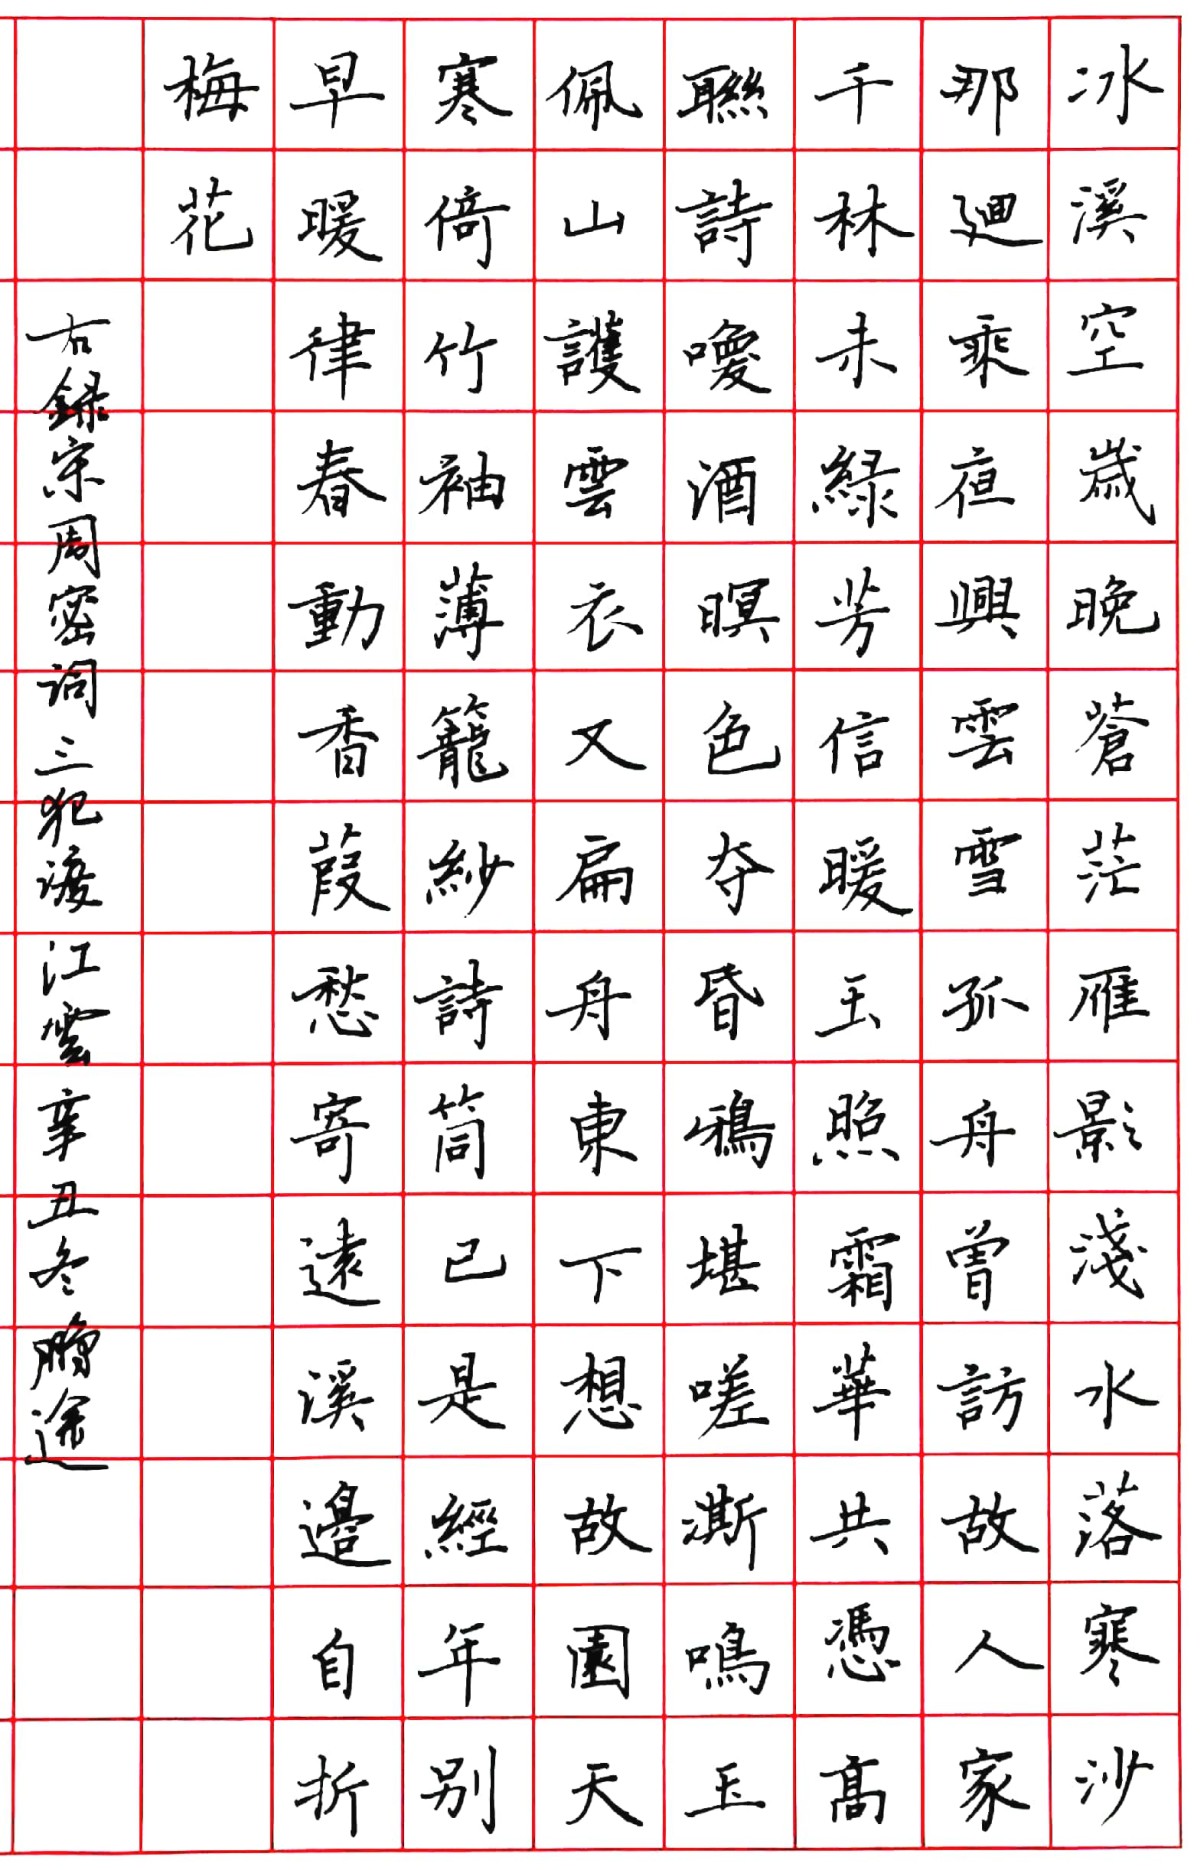 冰溪空歲晚蒼茫雁影淺水落寒沙
那廻乘夜興雲雪孤舟曾訪故人家
千林未綠芳信暖玉照霜華共憑高
聯詩喚酒暝色夺昏鴉堪嗟澌鳴玉
佩山護雲衣又扁舟東下想故園天
寒倚竹袖薄籠紗詩筒已是經年別
早暖律春動香葭愁寄遠溪邊自折
梅花
右録宋周密词三犯渡江雲辛丑冬鵬途